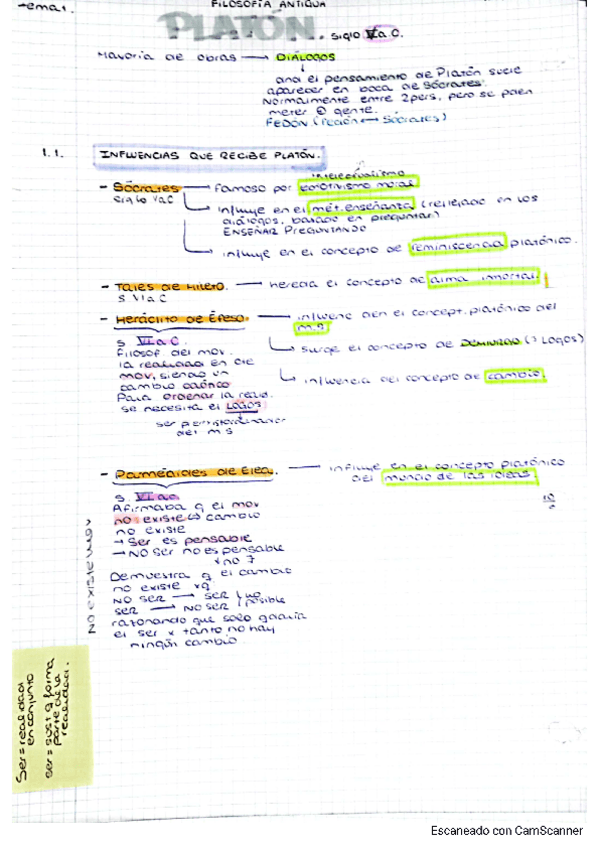 Tema 1.
FILOSOFÍA ANTIGUA
PLATÓN. siglo V a C.
Mayoría de obras → DIÁLOGOS
and el pensamiento de Platón suele
aparecer en boca de Sócrates.
Normalmente entre 2pers, pero se pueden
meter ⊕ gente.
FEDÓN (Fedón ↔ Sócrates)
1.1. INFLUENCIAS QUE RECIBE PLATÓN.
intelectualismo
- Sócrates → famoso por moral
siglo V a C
influye en el mét. enseñanza (reflejado en los
diálogos, basado en preguntar)
ENSEÑAR PREGUNTANDO
influye en el concepto de reminiscencia platónico.
- Tales de Mileto. → hereda el concepto de alma inmortal
S VI a C
- Heráclito de Éfeso. → influenc en concept. platónico del
m.s
s VI a C.
Filósof del mov.
la realidad en
mov, siendo un
cambio caótico
Para ordenar la realid.
se necesita el LOGOS
ser
del m s
Surge el concepto de DEMIURGO (> LOGOS)
influencia del concepto de cambio.
- Parménides de Elea. → influye en el concepto platónico
del mundo de las ideas.
s. VI a C
Afirmaba q el mov
no existe ↔ cambio
no existe
→ Ser es pensable
→ NO Ser no es pensable
x no ∃
Demuestra q el cambio
no existe xq
NO SER → SER } no
SER → NO SER } posible
razonando que solo
el ser x tanto no hay
ningún cambio.
No existe mov
Ser = realidad
en conjunto
ser = sust q forma
parte de la
realidad.
Escaneado con CamScanner